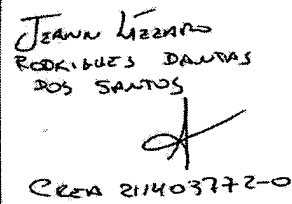 JEANN LÁZZARO
RODRIGUES DANTAS
DOS SANTOS
CREA 211403772-0